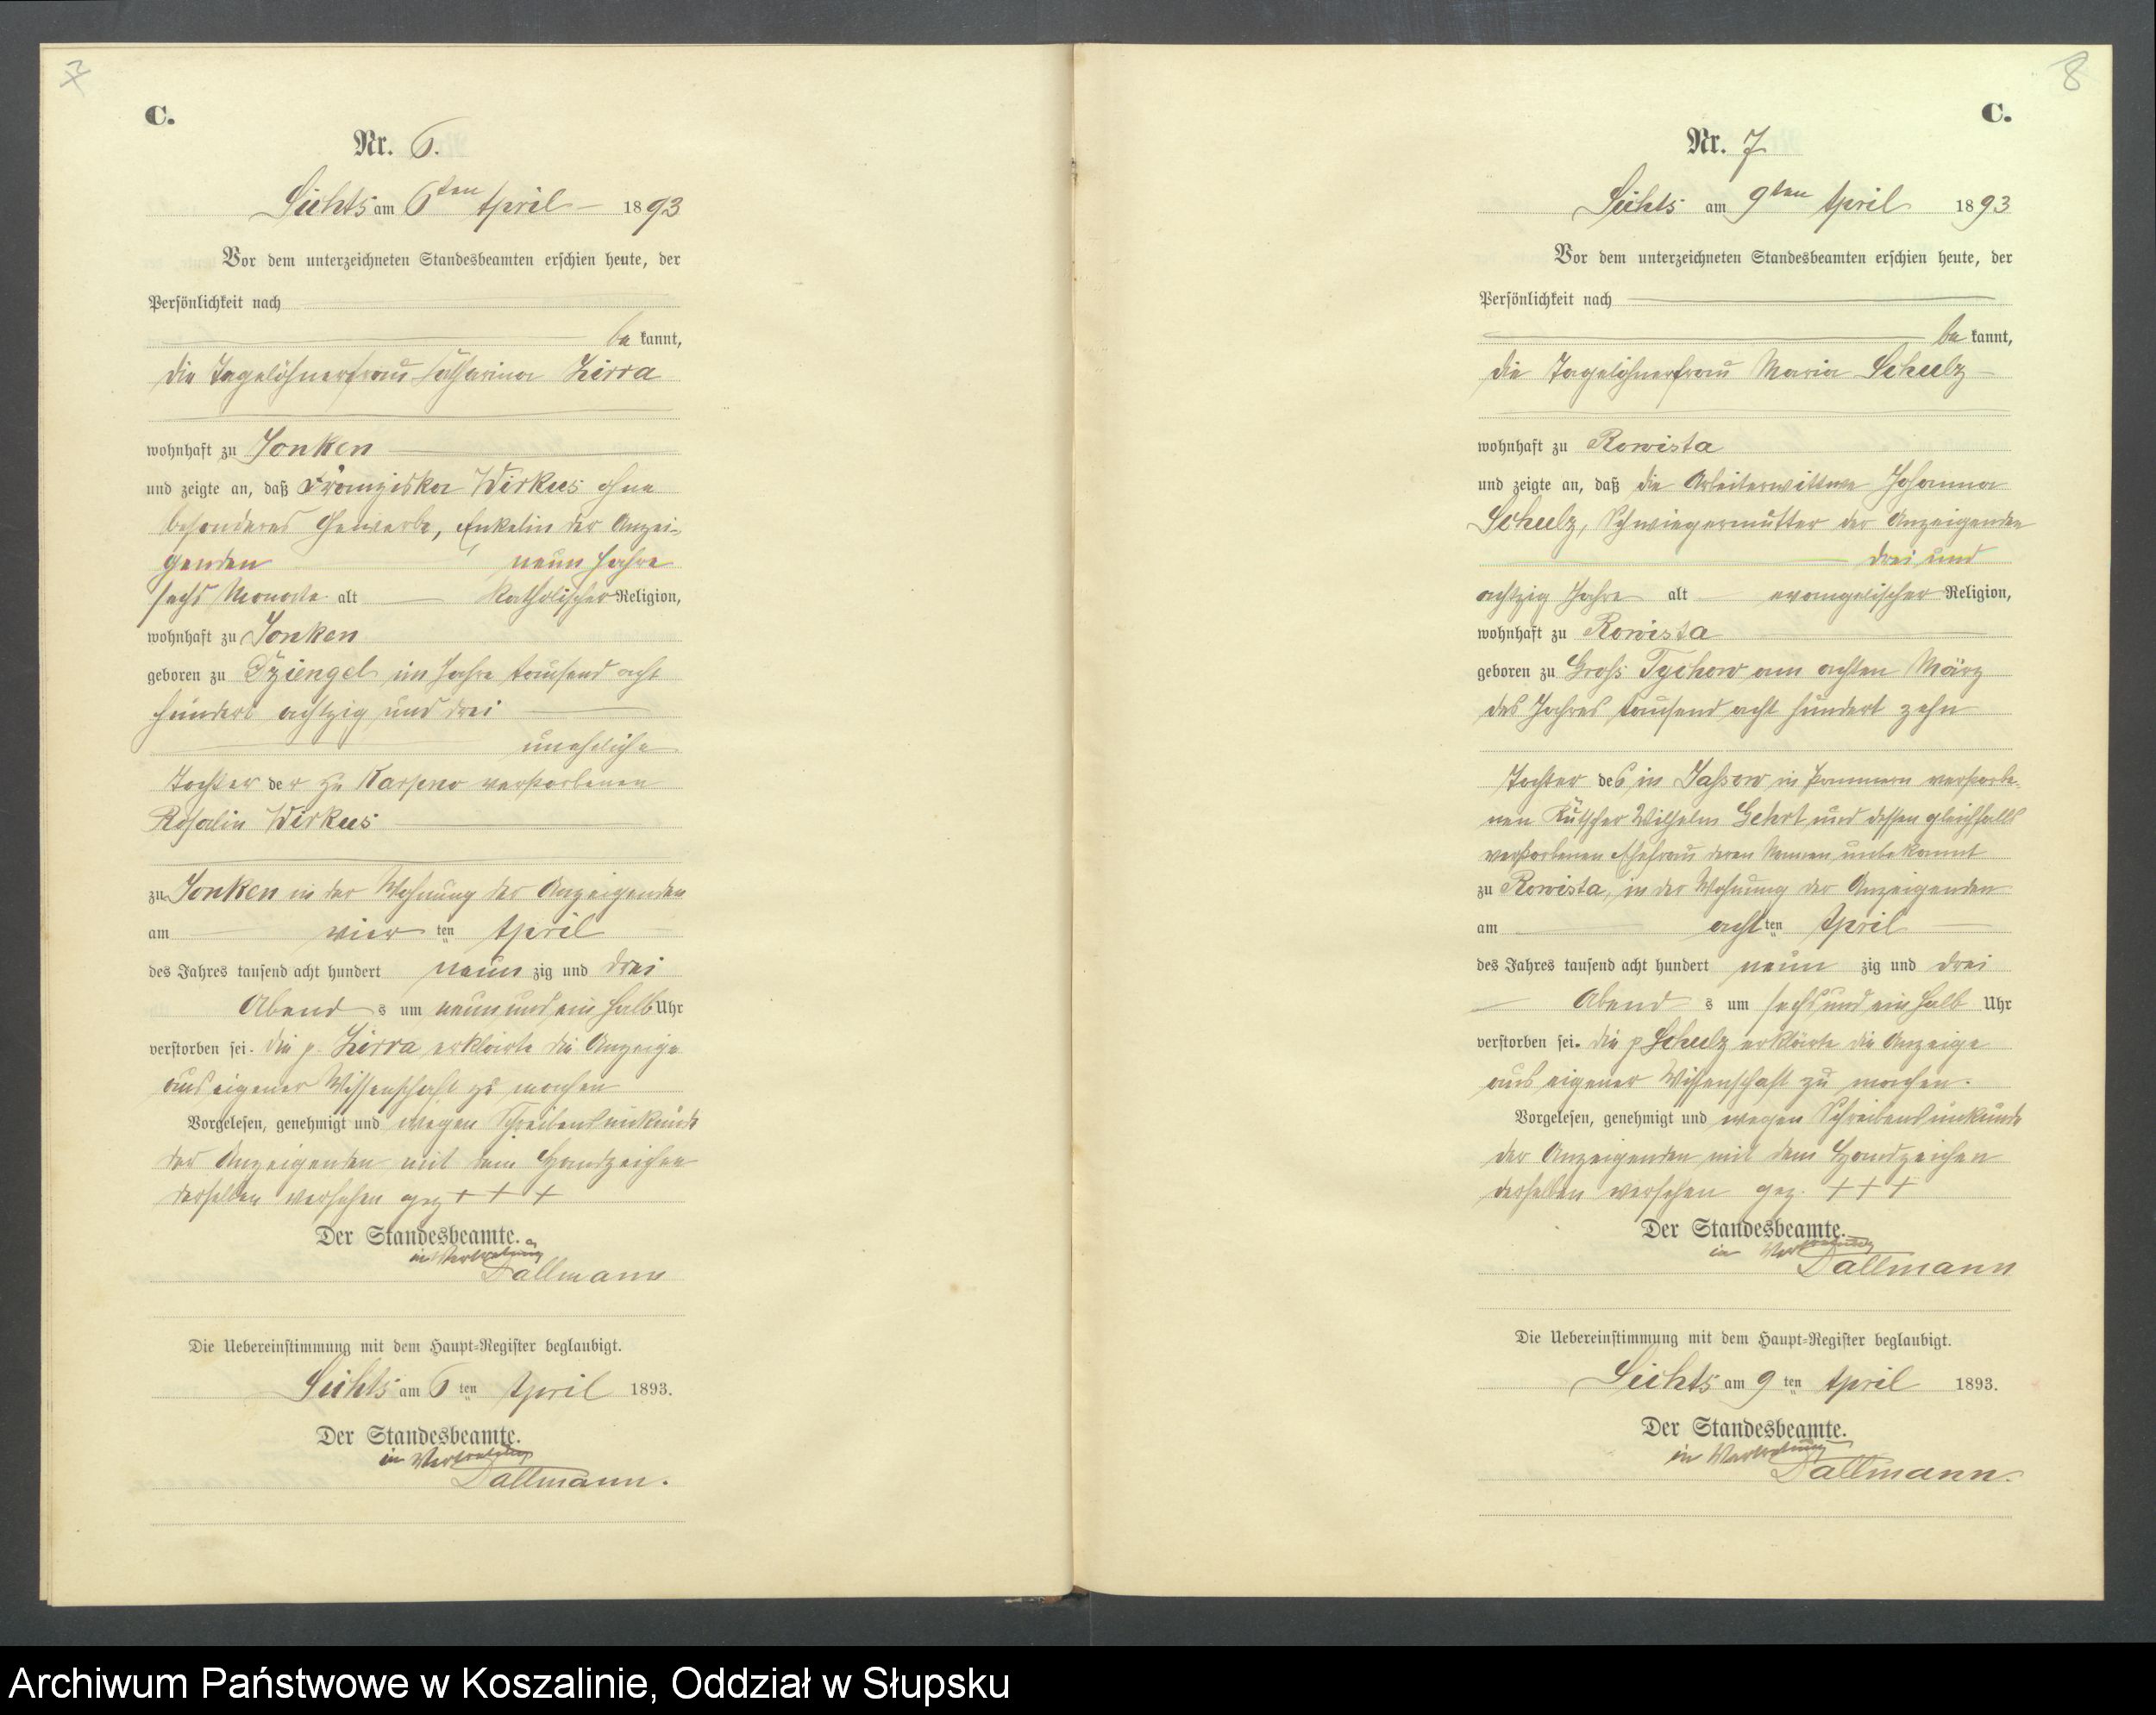 7
C.
Nr. 6.
Lichts am 6ten April 1893
Vor dem unterzeichneten Standesbeamten erschien heute, der
Persönlichkeit nach
be kannt,
die Tagelöhnerfrau Catharina Zirra
wohnhaft zu Jonken
und zeigte an, daß Franziska Wirkus ohne
besonderes Gewerbe, Enkelin der Anzei-
genden neun Jahre
sechs Monate alt katholischer Religion,
wohnhaft zu Jonken
geboren zu Dziengel im Jahre tausend acht
hundert achtzig und drei
uneheliche
Tochter der zu Karpno verstorbenen
Rosalin Wirkus
zu Jonken in der Wohnung der Anzeigenden
am vier ten April
des Jahres tausend acht hundert neun zig und drei
Abend s um neun und ein halb Uhr
verstorben sei. Die p. Zirra erklärte die Anzeige
aus eigener Wissenschaft zu machen
Vorgelesen, genehmigt und wegen Schreibensunkunde
der Anzeigenden mit dem Handzeichen
derselben versehen gez + + +
Der Standesbeamte.
in Vertretung
Dallmann
Die Uebereinstimmung mit dem Haupt-Register beglaubigt.
Lichts am 6 ten April 1893.
Der Standesbeamte.
in Vertretung
Dallmann.
8
C.
Nr. 7
Lichts am 9ten April 1893
Vor dem unterzeichneten Standesbeamten erschien heute, der
Persönlichkeit nach
be kannt,
die Tagelöhnerfrau Maria Schulz
wohnhaft zu Rowista
und zeigte an, daß die Arbeiterwittwe Johanna
Schulz, Schwiegermutter der Anzeigenden
drei und
achtzig Jahre alt evangelischer Religion,
wohnhaft zu Rowista
geboren zu Groß Tychow am achten März
des Jahres tausend acht hundert zehn
Tochter des in Jassow in Pommern verstorbe-
nen Kutscher Wilhelm Gehrt und dessen gleichfalls
verstorbenen Ehefrau deren Namen unbekannt
zu Rowista, in der Wohnung der Anzeigenden
am acht ten April
des Jahres tausend acht hundert neun zig und drei
Abend s um sechs und ein halb Uhr
verstorben sei. Die p Schulz erklärte die Anzeige
aus eigener Wissenschaft zu machen.
Vorgelesen, genehmigt und wegen Schreibensunkunde
der Anzeigenden mit dem Handzeichen
derselben versehen gez. + + +
Der Standesbeamte.
in Vertretung
Dallmann
Die Uebereinstimmung mit dem Haupt-Register beglaubigt.
Lichts am 9 ten April 1893.
Der Standesbeamte.
in Vertretung
Dallmann.
Archiwum Państwowe w Koszalinie, Oddział w Słupsku